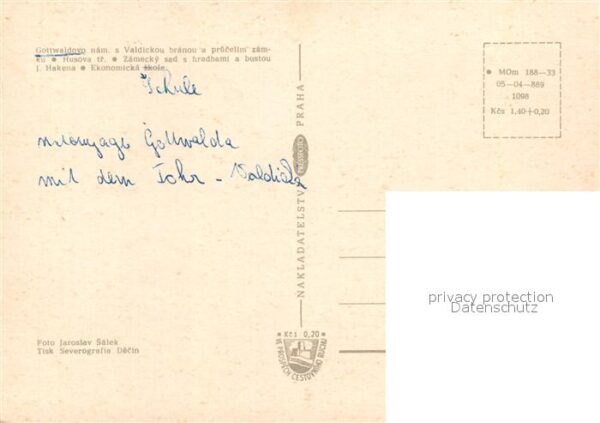 Gottwaldovo nám. s Valdickou bránou a průčelím zám-
ku ● Husova tř. ● Zámecký sad s hradbami a bustou
J. Hakena ● Ekonomická škola
Schule
Gottwalda
mit dem Tohr - Valdicka
NAKLADATELSTVÍ PRESSFOTO PRAHA
● MOm 188—33
05—04—889
1098
Kčs 1,40+0,20
privacy protection
Datenschutz
Foto Jaroslav Sálek
Tisk Severografia Děčín
Kčs 0,20
VE PROSPĚCH CESTOVNÍHO RUCHU